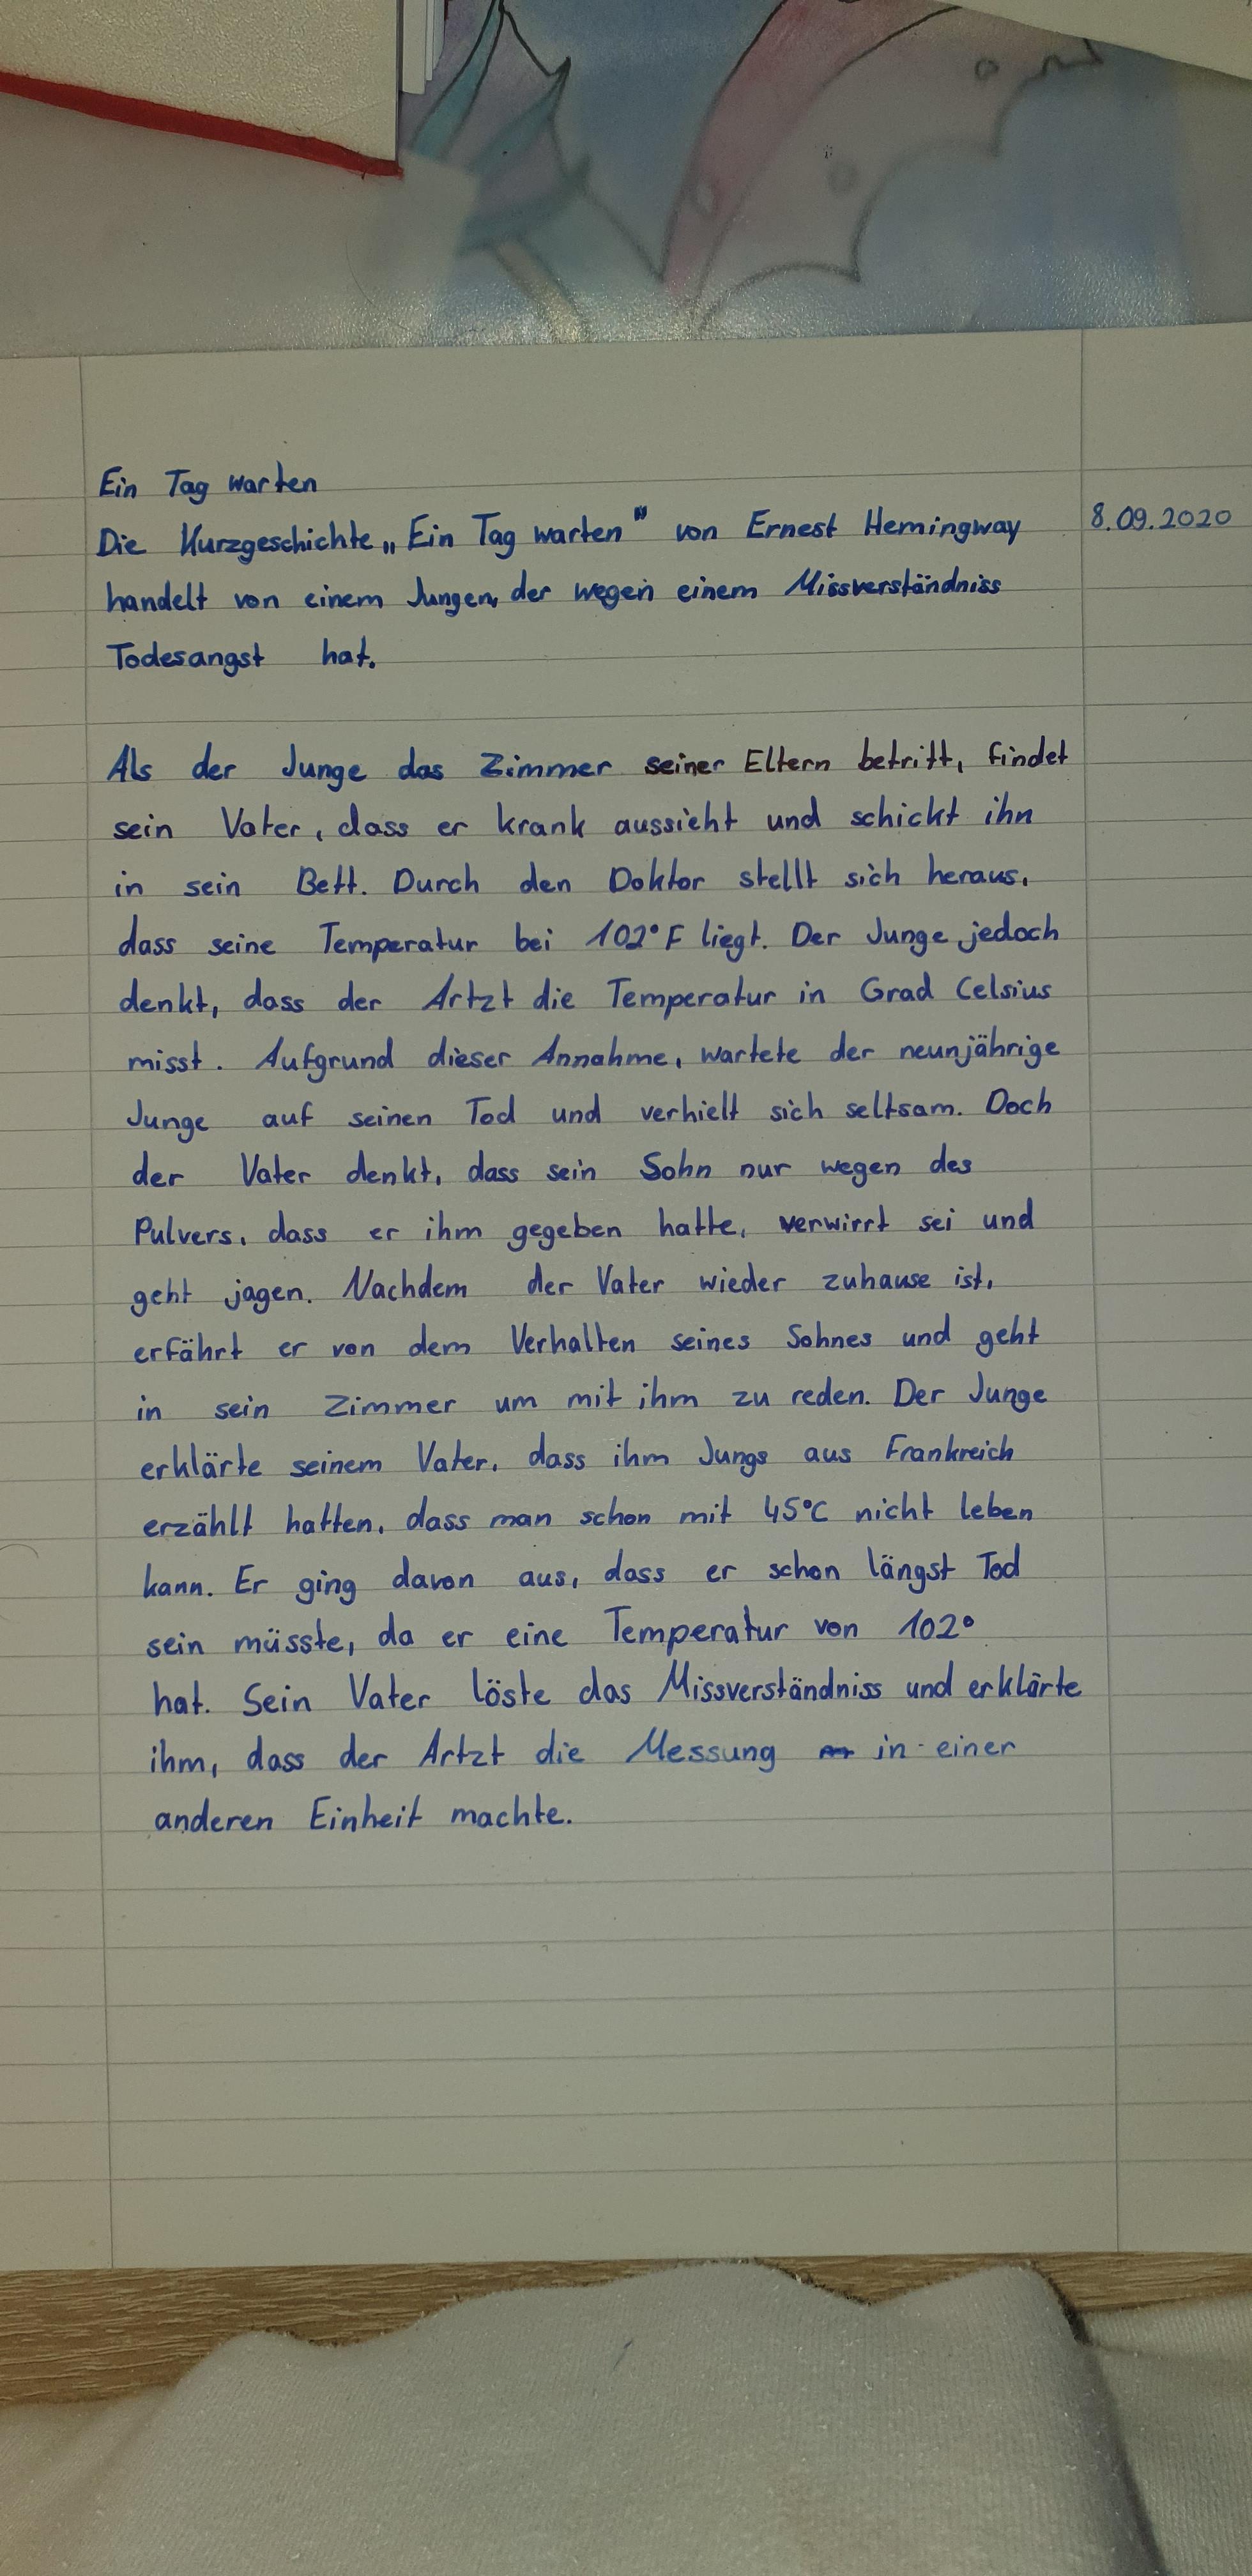 Ein Tag warten
Die Kurzgeschichte „Ein Tag warten" von Ernest Hemingway 8.09.2020
handelt von einem Jungen, der wegen einem Missverständniss
Todesangst hat.
Als der Junge das Zimmer seiner Eltern betritt, findet
sein Vater, dass er krank aussieht und schickt ihn
in sein Bett. Durch den Doktor stellt sich heraus,
dass seine Temperatur bei 102°F liegt. Der Junge jedoch
denkt, dass der Artzt die Temperatur in Grad Celsius
misst. Aufgrund dieser Annahme, wartete der neunjährige
Junge auf seinen Tod und verhielt sich seltsam. Doch
der Vater denkt, dass sein Sohn nur wegen des
Pulvers, dass er ihm gegeben hatte, verwirrt sei und
geht jagen. Nachdem der Vater wieder zuhause ist,
erfährt er von dem Verhalten seines Sohnes und geht
in sein Zimmer um mit ihm zu reden. Der Junge
erklärte seinem Vater, dass ihm Jungs aus Frankreich
erzählt hatten, dass man schon mit 45°C nicht leben
kann. Er ging davon aus, dass er schon längst Tod
sein müsste, da er eine Temperatur von 102°
hat. Sein Vater löste das Missverständniss und erklärte
ihm, dass der Artzt die Messung in einer
anderen Einheit machte.